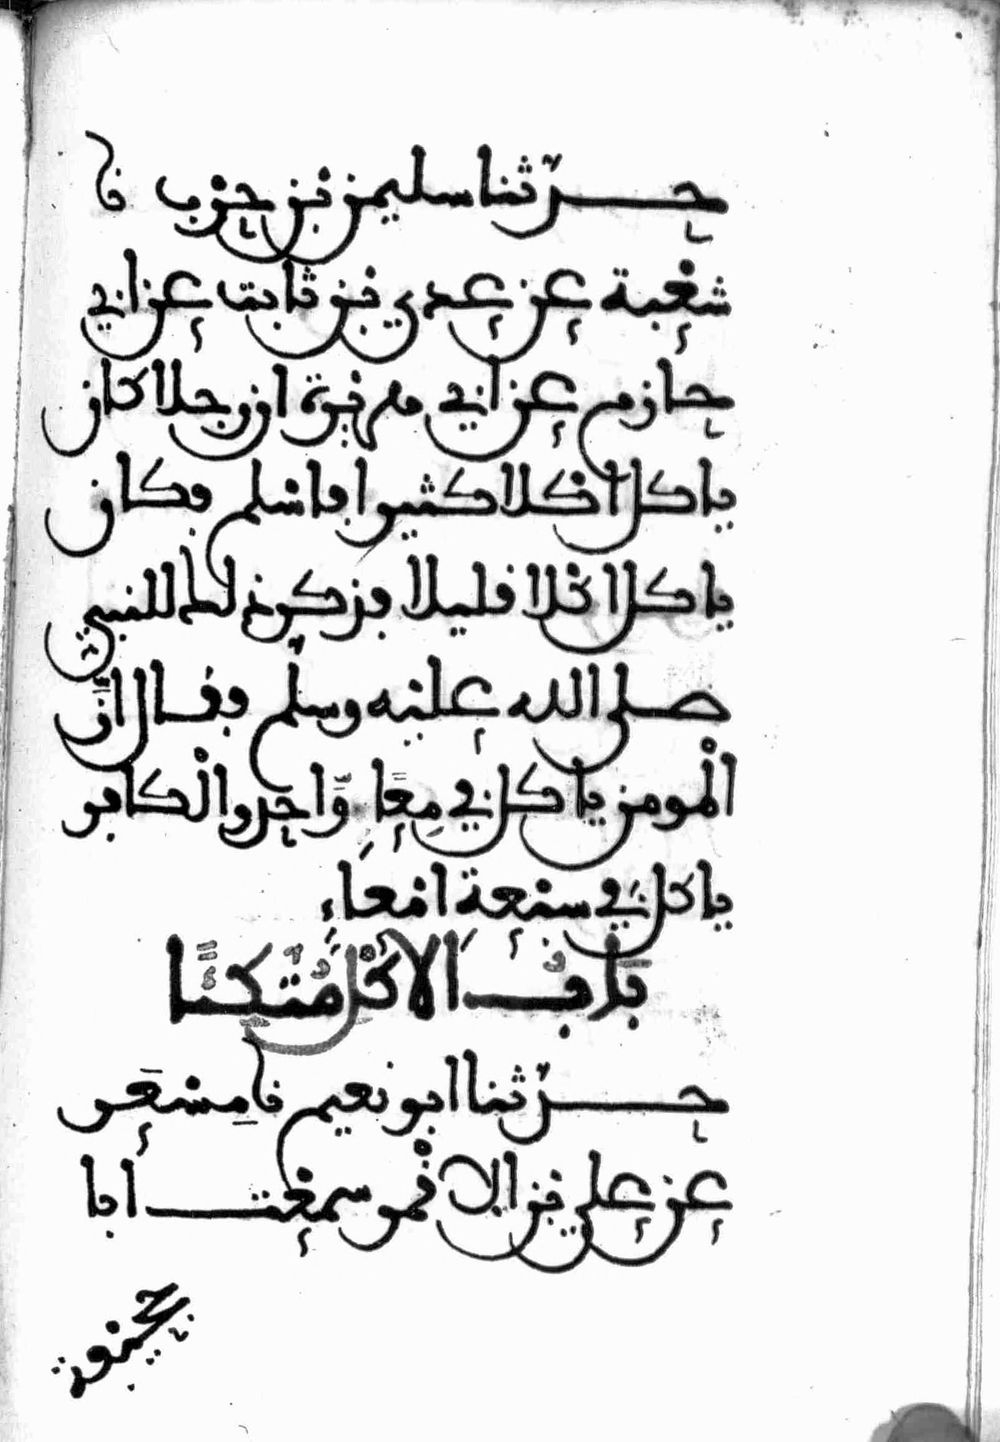 حدّثنا سليمن بن حرب نا
شعبة عن عدي بن ثابت عن ابي
حازم عن ابي هريرة ان رجلا كان
ياكل اكلا كثيرا فاسلم فكان
ياكل اكلا قليلا فذكر ذلك للنبي
صلى الله عليه وسلم فقال انّ
المومن ياكل في مِعًا وَّاحد والكافر
ياكل في سبعة امعاء
باب الاكل متكئا
حدّثنا ابو نعيم نا مسعر
عن علي بن الاقمر سمعت ابا
جحيفة